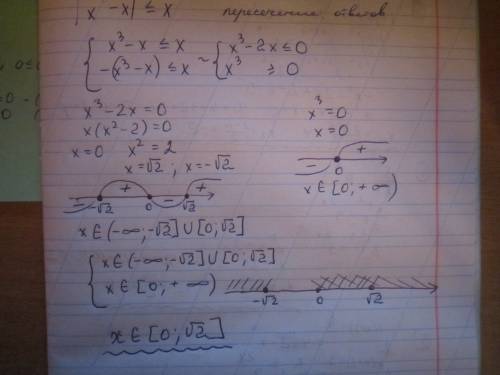 |x³-x| ≤ x пересечение ответов
{ x³-x ≤ x ~ { x³-2x ≤ 0
-(x³-x) ≤ x x³ ≥ 0
x³-2x=0
x(x²-2)=0
x=0 x²=2
x=√2 ; x=-√2
- + - +
-√2 0 √2
x∈(-∞;-√2]∪[0;√2]
x³=0
x=0
- +
0
x∈[0;+∞)
{ x∈(-∞;-√2]∪[0;√2]
x∈[0;+∞)
-√2 0 √2
x∈[0;√2]